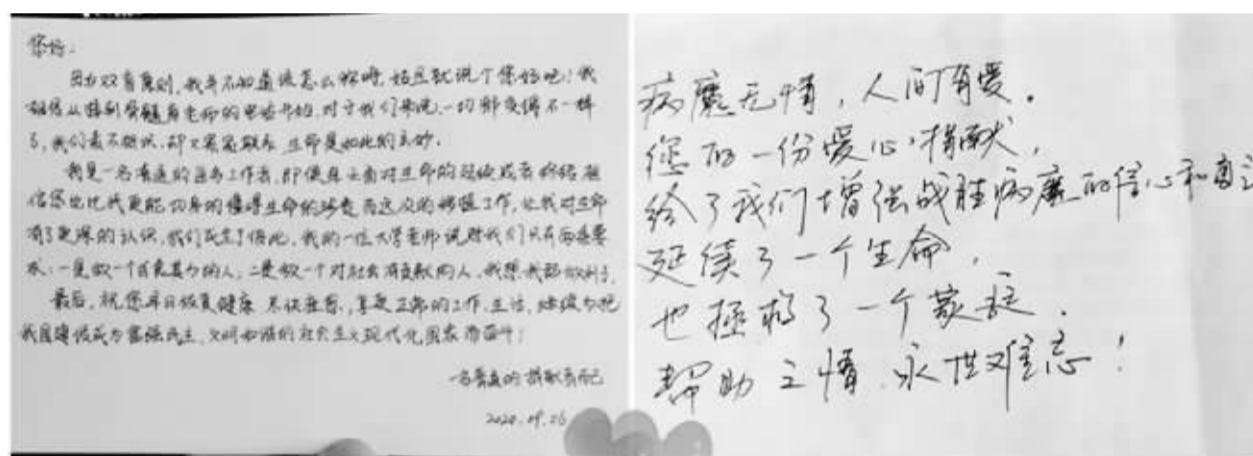 您好:
因为双盲原则,我并不知道该怎么称呼,姑且就说个您好吧!我
相信从接到骨髓库老师的电话开始,对于我们来说,一切都变得不一样
了,我们素不相识,却又紧密联系,生命是如此的玄妙。
我是一名普通的医务工作者,即便每天面对生命的延续或者终结,相
信您也比我更能切身的懂得生命的珍贵,而这次的捐髓工作,让我对生命
有了更深的认识,我们民生了彼此,我的一位大学老师说对我们只有两条要
求:一是做一个自食其力的人,二是做一个对社会有贡献的人,我想我都做到了。
最后,祝您早日恢复健康,尽快痊愈,享受正常的工作、生活,继续为把
我国建设成为富强民主、文明和谐的社会主义现代化国家而奋斗!
一名普通的捐献者
2020.09.06
病魔无情,人间有爱。
您的一份爱心捐献,
给了我们增强战胜病魔的信心和勇
延续了一个生命,
也拯救了一个家庭,
帮助之情,永世难忘!